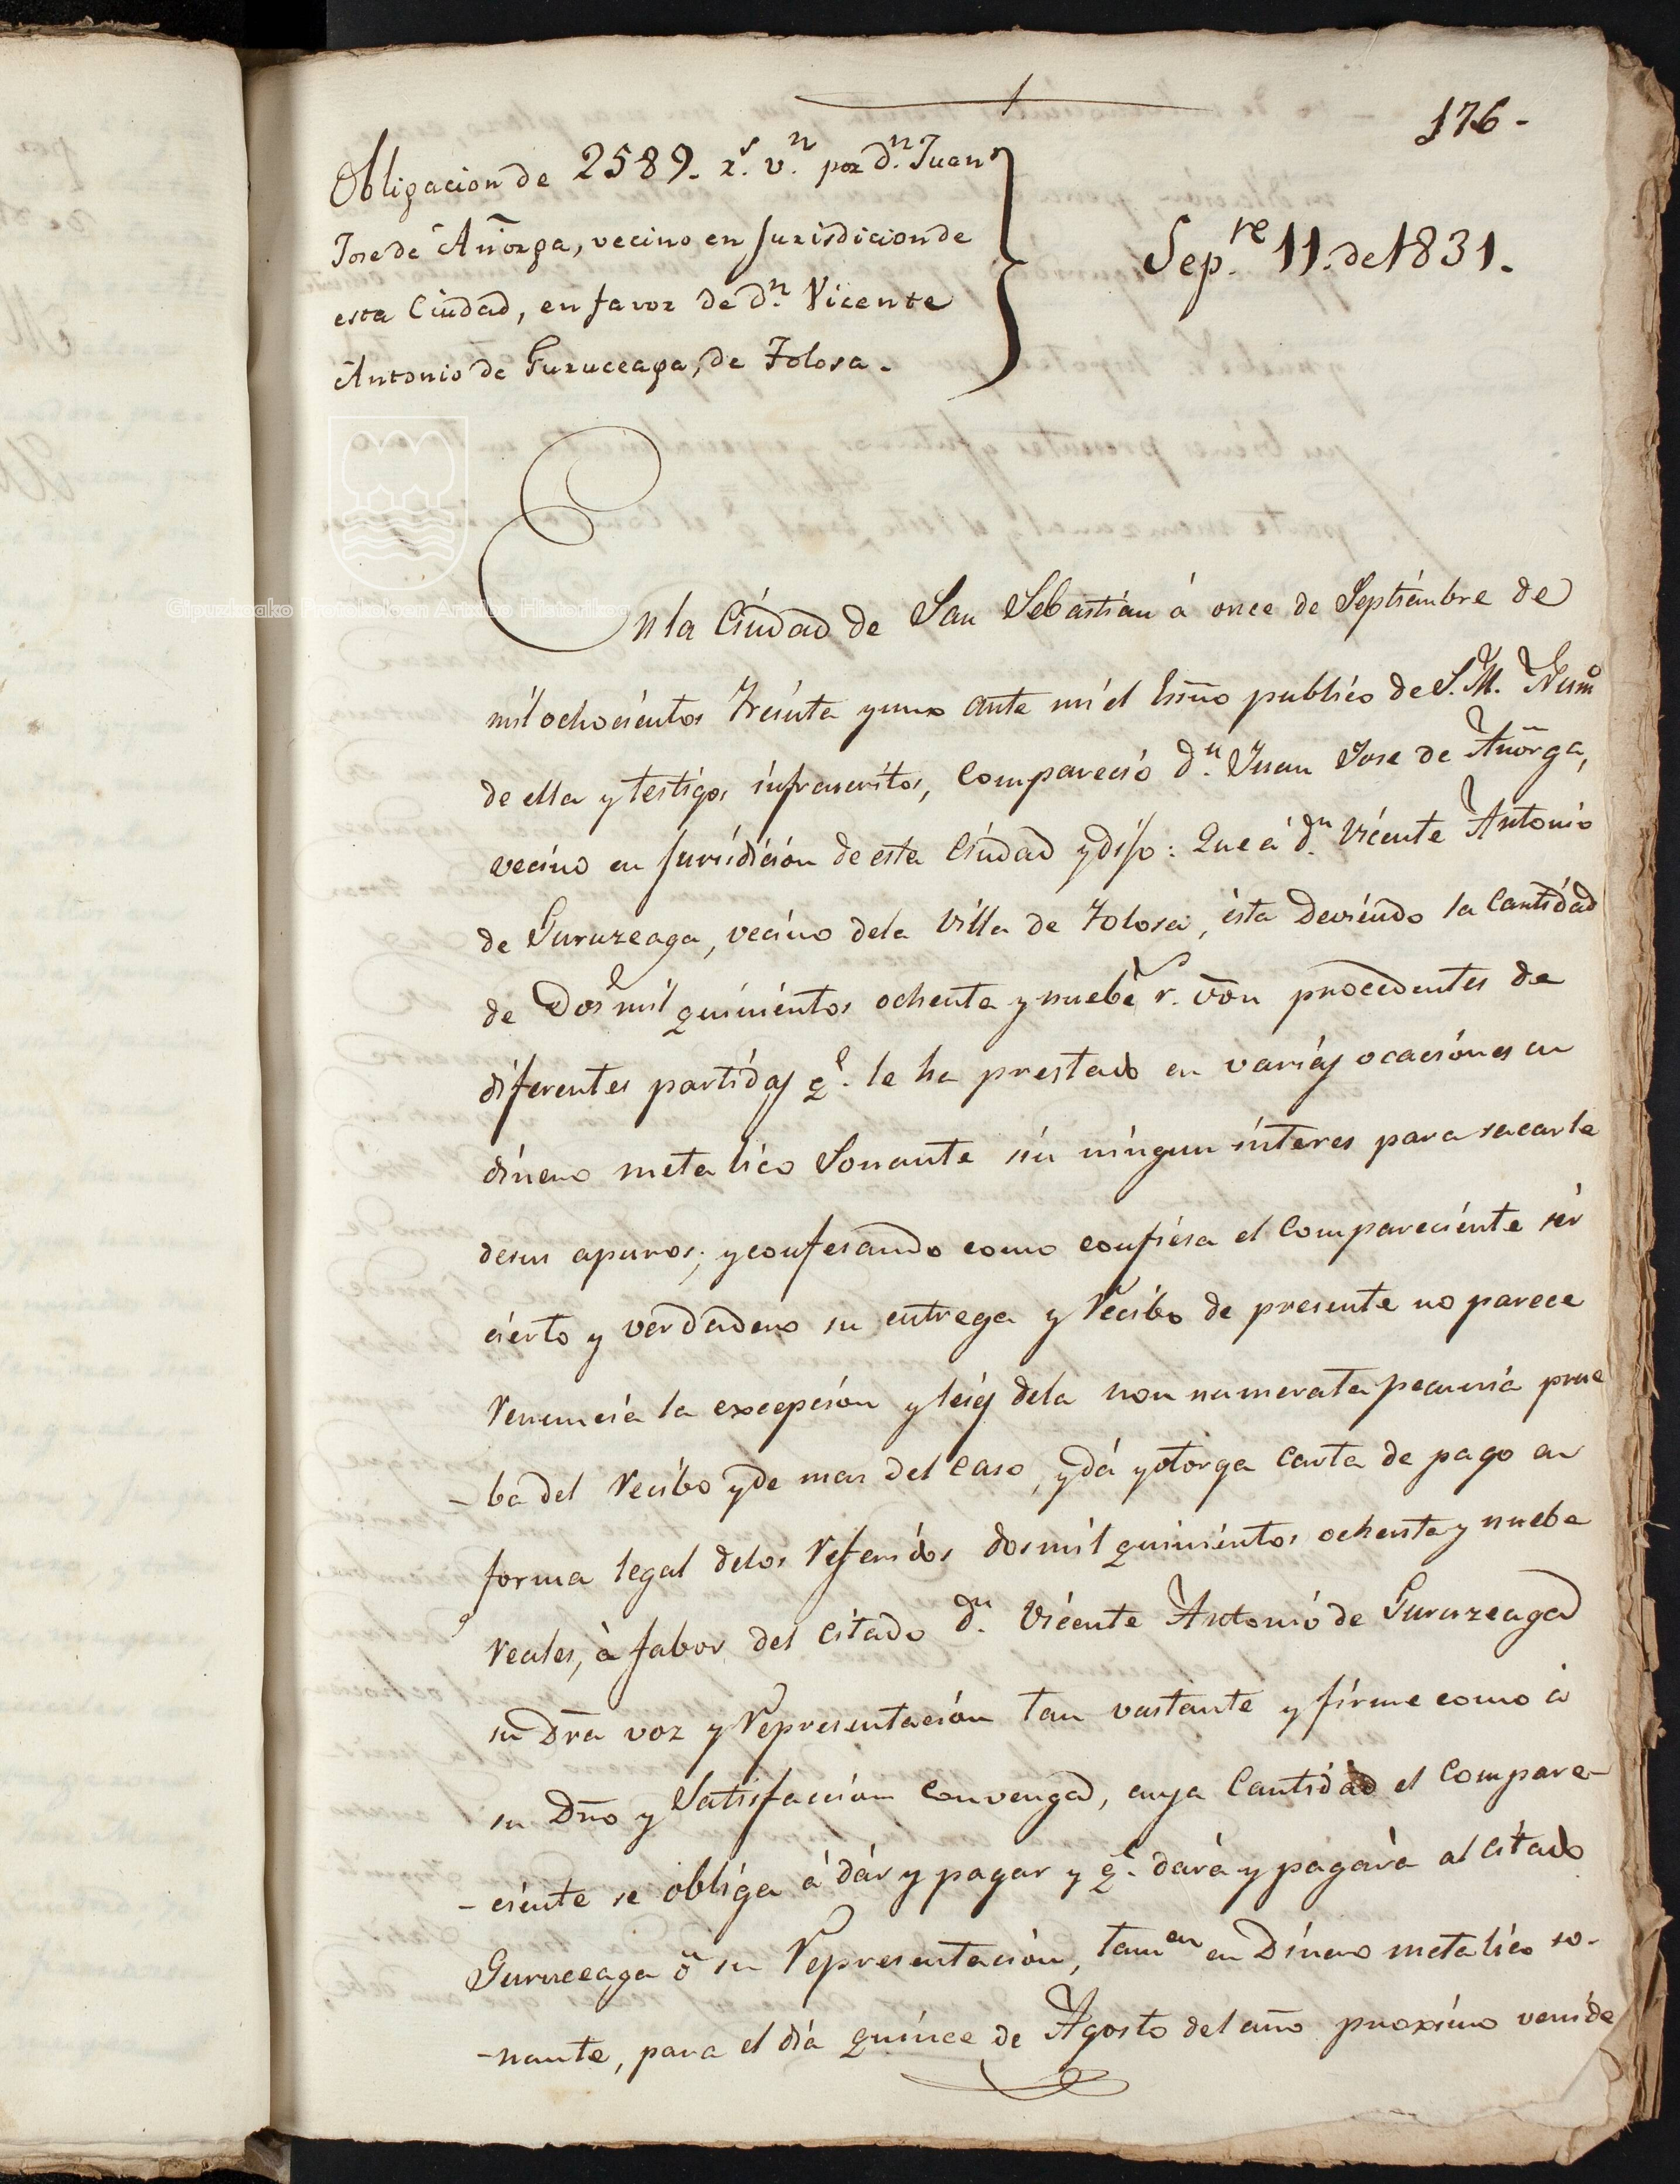 176.
Obligacion de 2589. rˢ. vⁿ. por dⁿ. Juan
Jose de Añorga, vecino en Jurisdicion de
esta Ciudad, en favor de dⁿ. Vicente
Antonio de Guruceaga, de Tolosa.
Sep.ʳᵉ 11. de 1831.
Gipuzkoako Protokoloen Artxibo Historikoa
En la Ciudad de San Sebastian á once de Septiembre de
mil ochocientos treinta y uno ante mi el Essno publico de S. M. Numº
de ella y testigos infrascritos, Comparecio dⁿ. Juan Jose de Añorga,
vecino en Jurisdicion de esta Ciudad y dijo: Que á dⁿ. Vicente Antonio
de Guruzeaga, vecino dela Villa de Tolosa, ésta Deviendo la Cantidad
de Dos mil quinientos ochenta y nuebe rˢ. von procedentes de
diferentes partidas qᵉ. le ha prestado en varias ocaciones en
dinero metalico Sonante sin ningun interes para sacarle
desus apuros; y confesando como confiesa el Compareciente sér
cierto y verdadero su entrega y Recibo de presente no parece
Renuncia la excepcion y leies dela non numerata pecunia prue
-ba del Recibo y de mas del caso, y dá y otorga Carta de pago en
forma legal delos Referidos dos mil quinientos ochenta y nuebe
reales, à fabor del Citado dⁿ. Vicente Antonio de Guruzeaga
su Dra voz y Representacion tan vastante y firme como á
su Dro y Satisfaccion convenga, cuya Cantidad el Compare-
-ciente se obliga á dár y pagar y qᵉ. dará y pagará al Citado
Guruceaga ó su Representacion, tamᵉⁿ en Dinero metalico so-
-nante, para el dia quince de Agosto del año proximo venide